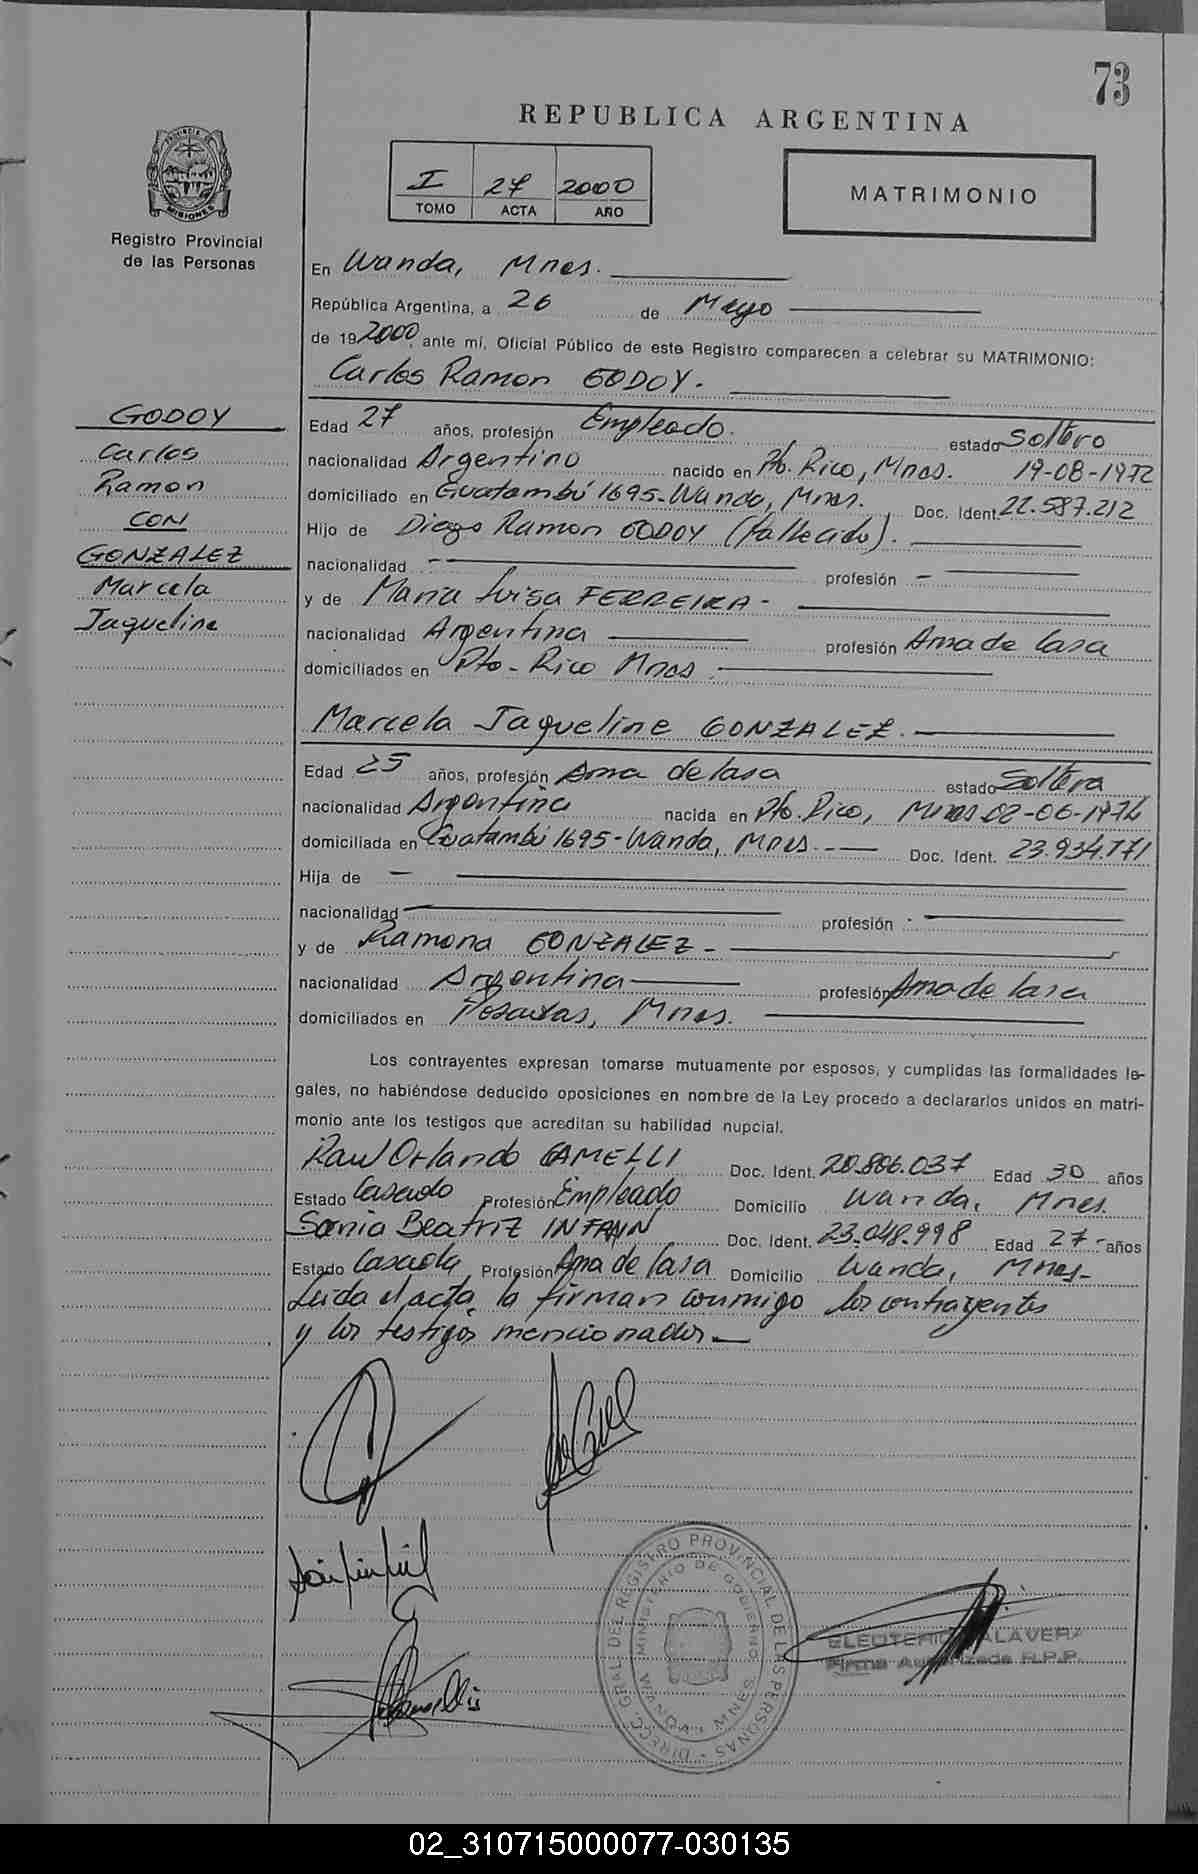 73
REPUBLICA ARGENTINA
PROVINCIA DE MISIONES
Registro Provincial
de las Personas
I 27 2000
TOMO ACTA AÑO
MATRIMONIO
En Wanda, Mnes.
República Argentina, a 26 de Mayo
de 19 2000, ante mí, Oficial Público de este Registro comparecen a celebrar su MATRIMONIO:
Carlos Ramon GODOY.
GODOY
Carlos
Ramon
CON
GONZALEZ
Marcela
Jaqueline
Edad 27 años, profesión Empleado. estado Soltero
nacionalidad Argentino nacido en Pto. Rico, Mnes. 19-08-1972
domiciliado en Guatambú 1695-Wanda, Mnes. Doc. Ident. 22.587.212
Hijo de Diego Ramon GODOY (fallecido).
nacionalidad - profesión -
y de Maria Luisa FERREIRA -
nacionalidad Argentina profesión Ama de Casa
domiciliados en Pto-Rico Mnes.
Marcela Jaqueline GONZALEZ.
Edad 25 años, profesión Ama de Casa estado Soltera
nacionalidad Argentina nacida en Pto. Rico, Mnes 02-06-1974
domiciliada en Guatambú 1695-Wanda, Mnes. Doc. Ident. 23.934.171
Hija de -
nacionalidad profesión
y de Ramona GONZALEZ -
nacionalidad Argentina profesión Ama de Casa
domiciliados en Posadas, Mnes.
Los contrayentes expresan tomarse mutuamente por esposos, y cumplidas las formalidades le-
gales, no habiéndose deducido oposiciones en nombre de la Ley procedo a declararlos unidos en matri-
monio ante los testigos que acreditan su habilidad nupcial.
Raul Orlando CAMELLI Doc. Ident. 20.806.037 Edad 30 años
Estado Casado Profesión Empleado Domicilio Wanda, Mnes.
Sonia Beatriz Doc. Ident. 23.048.998 Edad 27- años
Estado Casada Profesión Ama de Casa Domicilio Wanda, Mnes-
Leida el acta, la firman conmigo los contrayentes
y los testigos mencionados
DIRECC. GRAL DEL REGISTRO PROVINCIAL DE LAS PERSONAS
MINISTERIO DE GOBIERNO
WANDA - MNES.
ELEOTERIO TALAVERA
Firma Autorizada R.P.P.
02_310715000077-030135